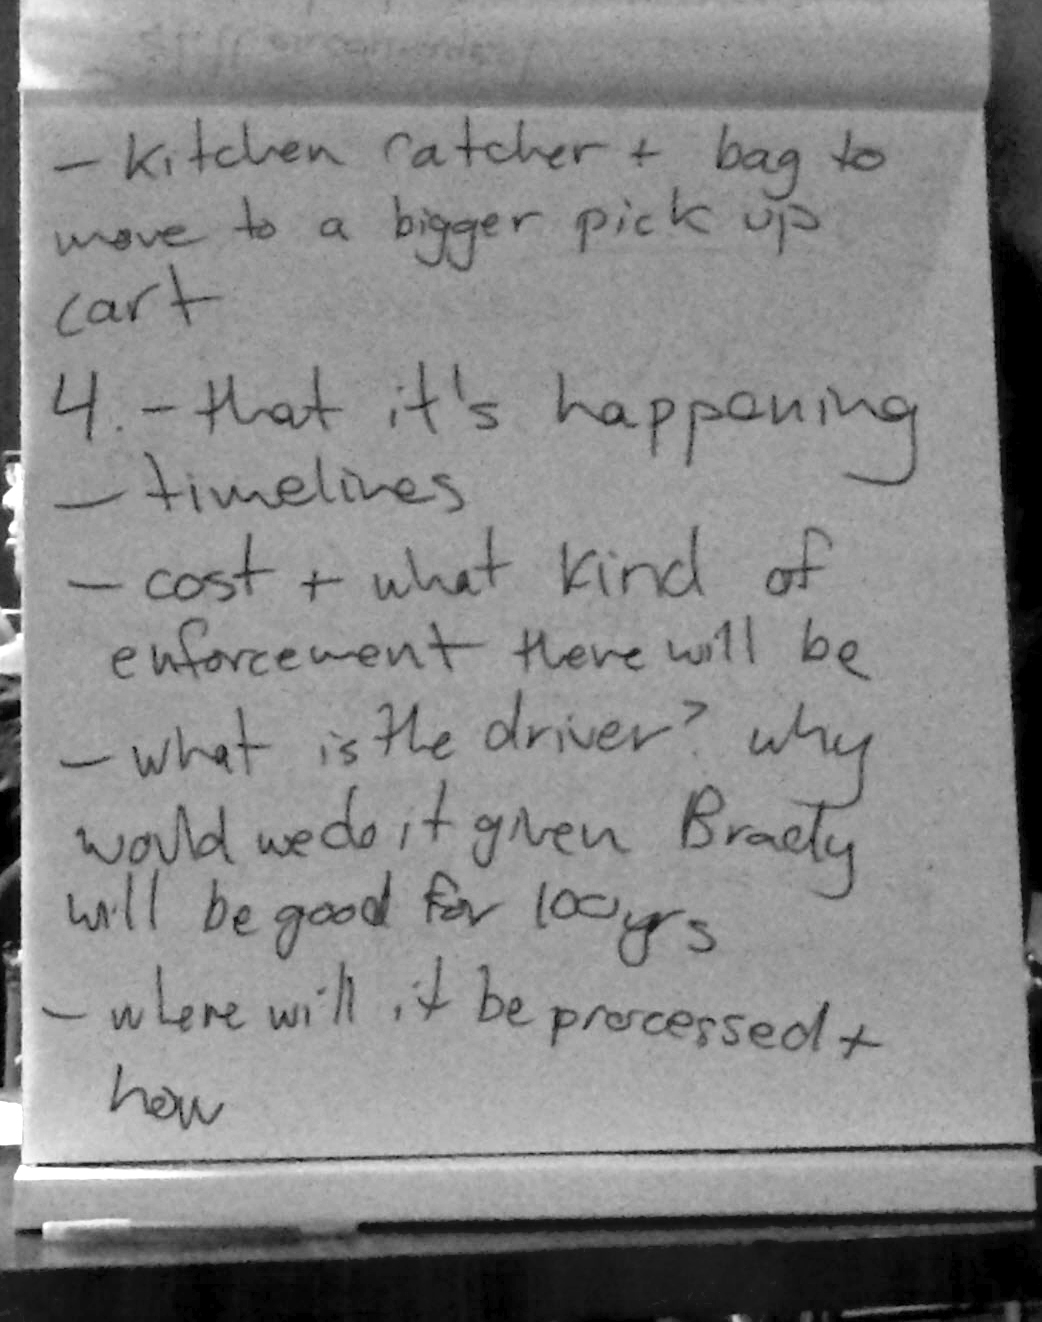 - kitchen catcher + bag to
move to a bigger pick up
cart
4. - that it's happening
- timelines
- cost + what kind of
enforcement there will be
- what is the driver? why
would we do it given Brady
will be good for 100 yrs
- where will it be processed +
how